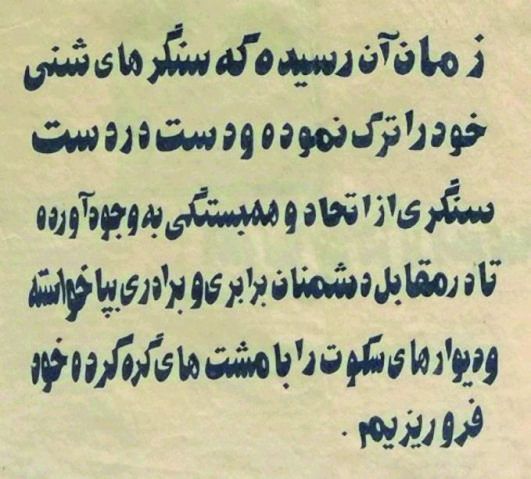 زمان آن رسیده که سنگر های شنی
خود را ترک نموده و دست در دست
سنگری از اتحاد و همبستگی به وجود آورده
تا در مقابل دشمنان برابری و برادری بپا خواسته
و دیوار های سکوت را با مشت های گره کرده خود
فرو ریزیم.